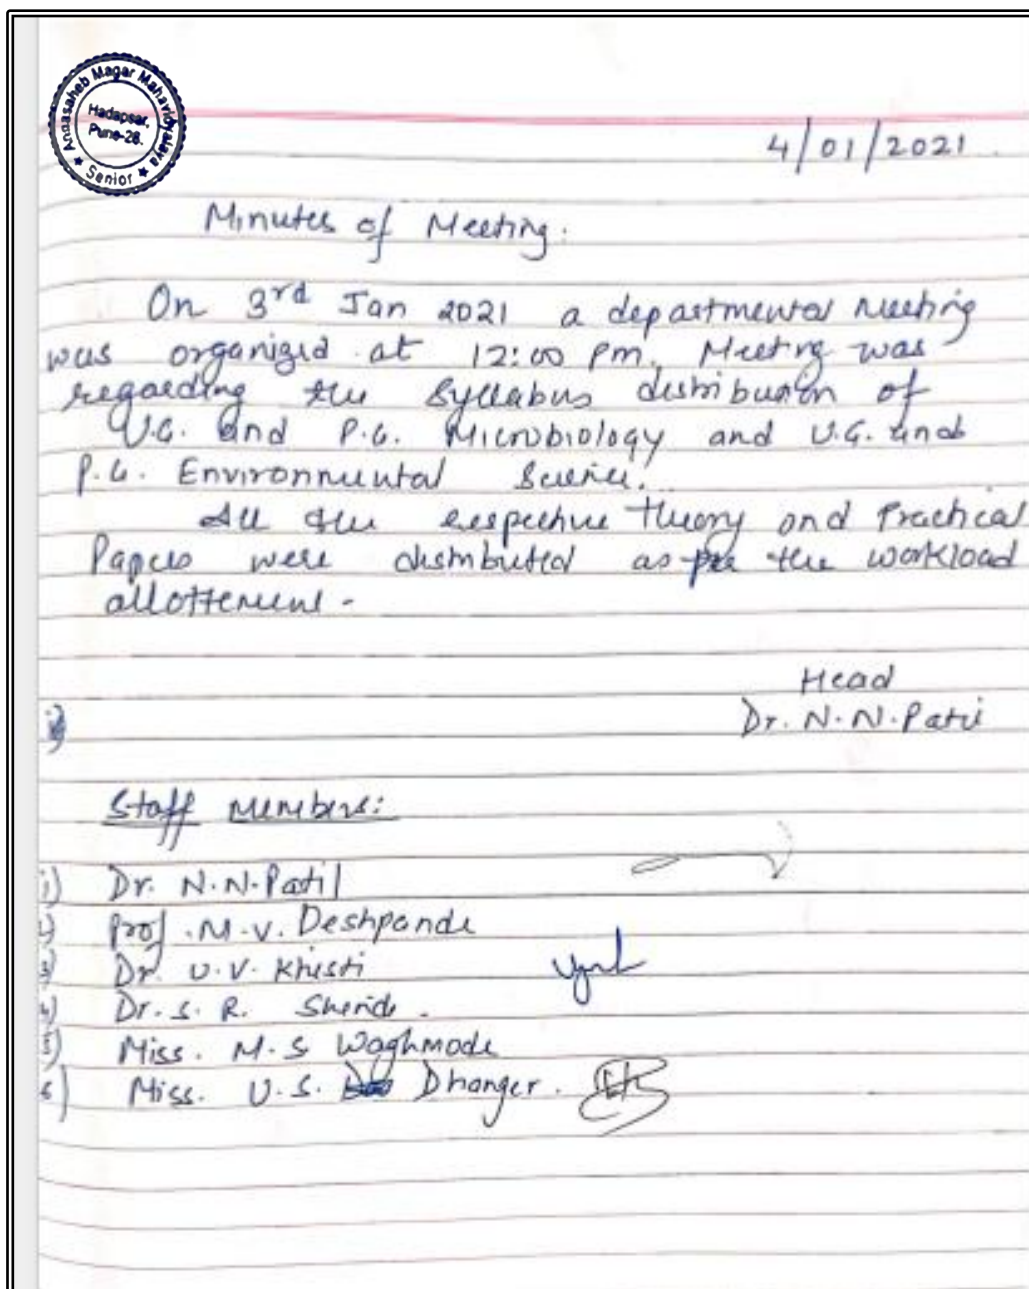 Annasaheb Magar Mahavidyalaya
Hadapsar,
Pune-28.
★ Senior ★
4/01/2021
Minutes of Meeting:
On 3rd Jan 2021 a departmental Meeting
was organized at 12:00 pm. Meeting was
regarding the Syllabus distribution of
U.G. and P.G. Microbiology and U.G. and
P.G. Environmental Science.
All the respective theory and Practical
Papers were distributed as per the workload
allottement -
Head
Dr. N. N. Patil
Staff Members:
1) Dr. N. N. Patil
2) Prof. M. V. Deshpande
3) Dr. U. V. Khisti
4) Dr. S. R. Shende.
5) Miss. M. S Waghmode
6) Miss. U. S. Dhanger.